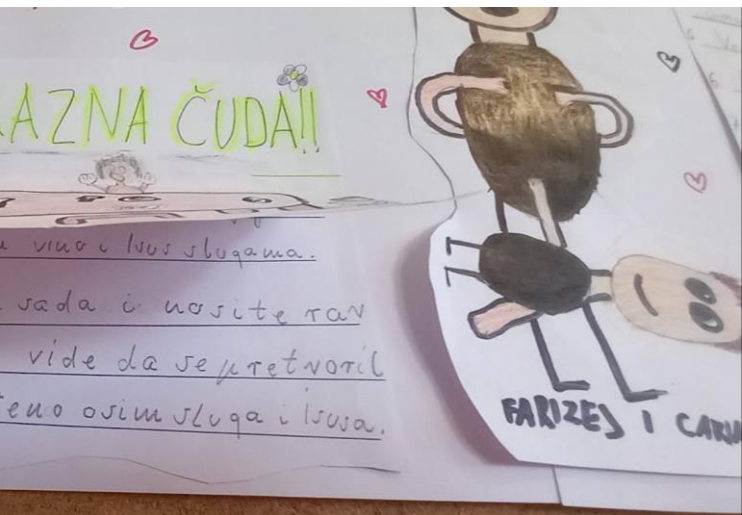 AZNA ČUDA!!
vino i Isus slugama.
sada i nosite rav
vide da se pretvoril
osim sluga i Isusa.
FARIZEJ I CARIN